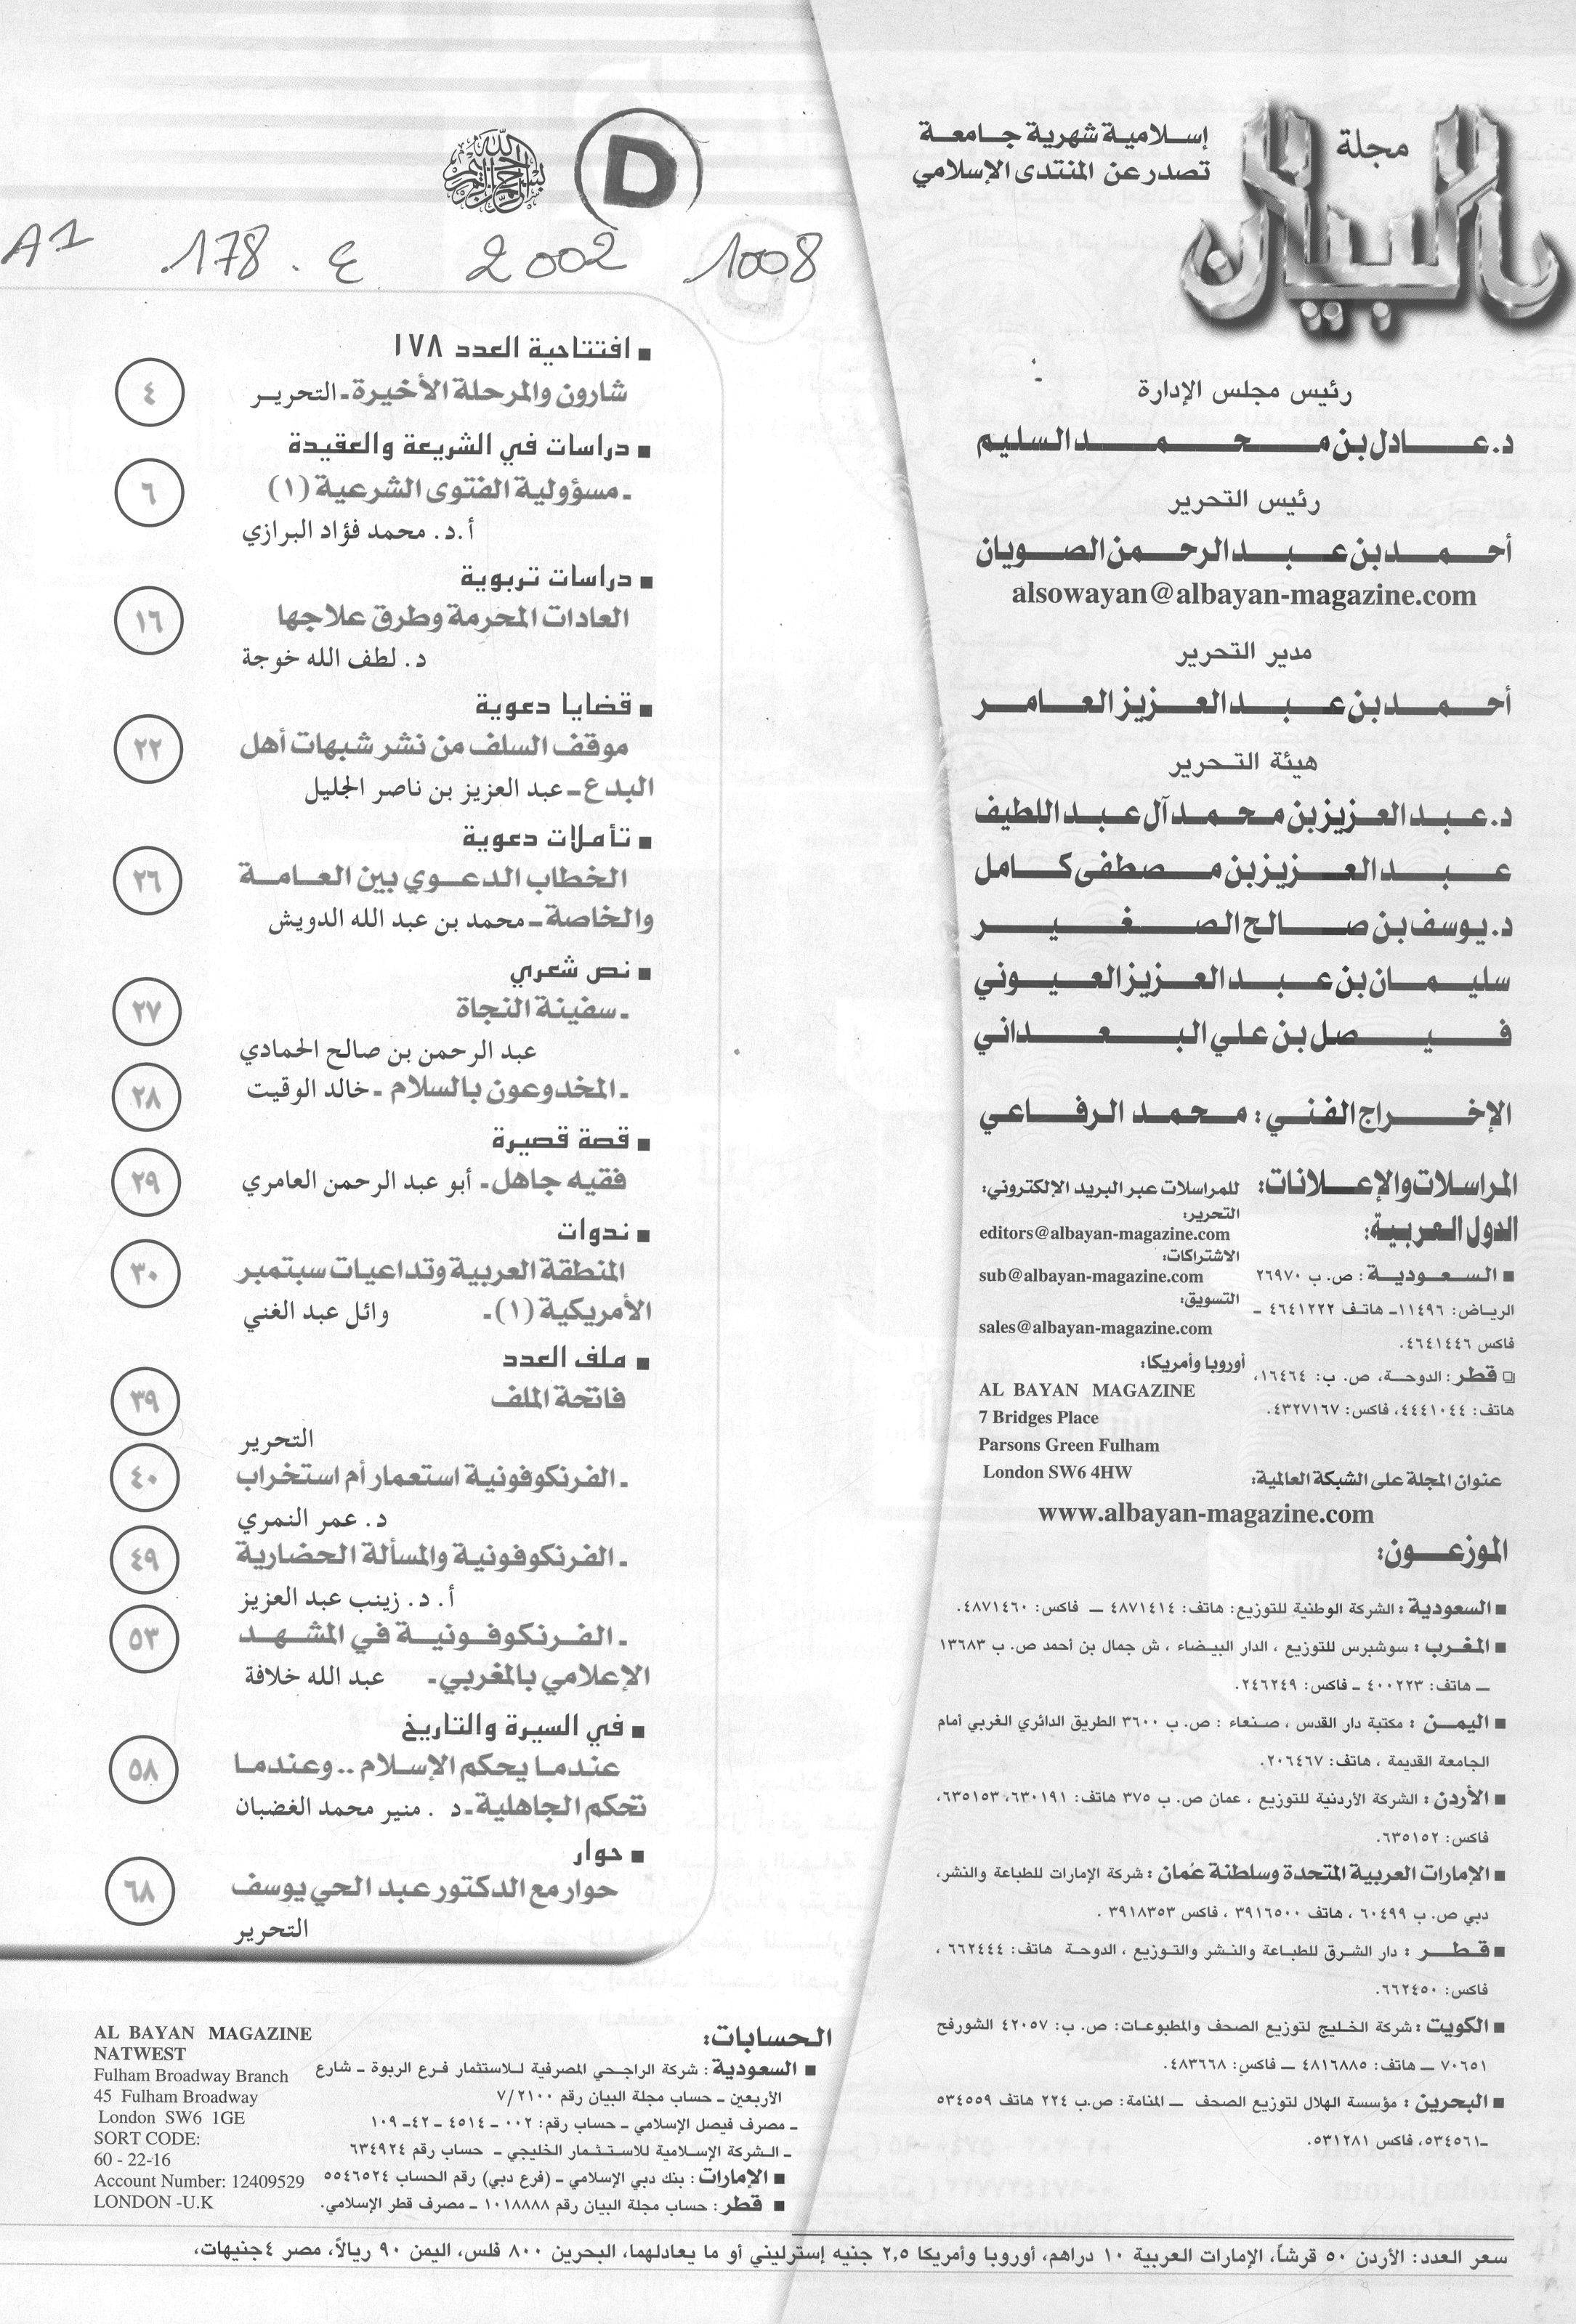 مجلة
البيان
إسلامية شهرية جامعة
تصدر عن المنتدى الإسلامي
رئيس مجلس الإدارة
د. عادل بن محمد السليم
رئيس التحرير
أحمد بن عبد الرحمن الصويان
alsowayan@albayan-magazine.com
مدير التحرير
أحمد بن عبد العزيز العامر
هيئة التحرير
د. عبد العزيز بن محمد آل عبد اللطيف
عبد العزيز بن مصطفى كامل
د. يوسف بن صالح الصغير
سليمان بن عبد العزيز العيوني
فيصل بن علي البعداني
الإخراج الفني: محمد الرفاعي
المراسلات والإعلانات:
الدول العربية:
■ السعودية: ص. ب ٢٦٩٧٠
الرياض: ١١٤٩٦ـ هاتف ٤٦٤١٢٢٢ ـ
فاكس ٤٦٤١٤٤٦.
❑ قطر: الدوحة، ص. ب: ١٦٤٦٤،
هاتف: ٤٤٤١٠٤٤، فاكس: ٤٣٢٧١٦٧.
للمراسلات عبر البريد الإلكتروني:
التحرير:
editors@albayan-magazine.com
الاشتراكات:
sub@albayan-magazine.com
التسويق:
sales@albayan-magazine.com
أوروبا وأمريكا:
AL BAYAN MAGAZINE
7 Bridges Place
Parsons Green Fulham
London SW6 4HW
عنوان المجلة على الشبكة العالمية:
www.albayan-magazine.com
الموزعون:
■ السعودية: الشركة الوطنية للتوزيع: هاتف: ٤٨٧١٤١٤ ــ فاكس: ٤٨٧١٤٦٠.
■ المغرب: سوشبرس للتوزيع ، الدار البيضاء ، ش جمال بن أحمد ص. ب ١٣٦٨٣
ــ هاتف: ٤٠٠٢٢٣ ـ فاكس: ٢٤٦٢٤٩.
■ اليمن : مكتبة دار القدس ، صنعاء : ص. ب ٣٦٠٠ الطريق الدائري الغربي أمام
الجامعة القديمة ، هاتف: ٢٠٦٤٦٧.
■ الأردن: الشركة الأردنية للتوزيع ، عمان ص. ب ٣٧٥ هاتف: ٦٣٠١٩١، ٦٣٥١٥٣،
فاكس: ٦٣٥١٥٢.
■ الإمارات العربية المتحدة وسلطنة عُمان : شركة الإمارات للطباعة والنشر،
دبي ص. ب ٦٠٤٩٩ ، هاتف ٣٩١٦٥٠٠ ، فاكس ٣٩١٨٣٥٣ .
■ قطر : دار الشرق للطباعة والنشر والتوزيع ، الدوحة هاتف: ٦٦٢٤٤٤ ،
فاكس: ٦٦٢٤٥٠.
■ الكويت : شركة الخليج لتوزيع الصحف والمطبوعات: ص. ب: ٤٢٠٥٧ الشورفح
٧٠٦٥١ ــ هاتف: ٤٨١٦٨٨٥ ــ فاكس: ٤٨٣٦٦٨.
■ البحرين : مؤسسة الهلال لتوزيع الصحف ــ المنامة: ص.ب ٢٢٤ هاتف ٥٣٤٥٥٩
ـ٥٣٤٥٦١، فاكس ٥٣١٢٨١.
D
A1 .178. ع 2002 1008
■ افتتاحية العدد ١٧٨
شارون والمرحلة الأخيرة ـ التحرير ٤
■ دراسات في الشريعة والعقيدة
ـ مسؤولية الفتوى الشرعية (١) ٦
أ. د. محمد فؤاد البرازي
■ دراسات تربوية
العادات المحرمة وطرق علاجها ١٦
د. لطف الله خوجة
■ قضايا دعوية
موقف السلف من نشر شبهات أهل ٢٢
البدع ـ عبد العزيز بن ناصر الجليل
■ تأملات دعوية
الخطاب الدعوي بين العامة ٢٦
والخاصة ـ محمد بن عبد الله الدويش
■ نص شعري
ـ سفينة النجاة ٢٧
عبد الرحمن بن صالح الحمادي
ـ المخدوعون بالسلام ـ خالد الوقيت ٢٨
■ قصة قصيرة
فقيه جاهل ـ أبو عبد الرحمن العامري ٢٩
■ ندوات
المنطقة العربية وتداعيات سبتمبر ٣٠
الأمريكية (١) ـ وائل عبد الغني
■ ملف العدد
فاتحة الملف ٣٩
التحرير
ـ الفرنكوفونية استعمار أم استخراب ٤٠
د. عمر النمري
ـ الفرنكوفونية والمسألة الحضارية ٤٩
أ. د. زينب عبد العزيز
ـ الفرنكوفونية في المشهد ٥٣
الإعلامي بالمغربي ـ عبد الله خلافة
■ في السيرة والتاريخ
عندما يحكم الإسلام .. وعندما ٥٨
تحكم الجاهلية ـ د . منير محمد الغضبان
■ حوار
حوار مع الدكتور عبد الحي يوسف ٦٨
التحرير
الحسابات:
■ السعودية : شركة الراجحي المصرفية للاستثمار فرع الربوة ـ شارع
الأربعين ـ حساب مجلة البيان رقم ٧/٢١٠٠
ـ مصرف فيصل الإسلامي ـ حساب رقم: ٠٠٢ ـ ٤٥١٤ ـ ٤٢ـ ١٠٩
ـ الشركة الإسلامية للاستثمار الخليجي ـ حساب رقم ٦٣٤٩٢٤
■ الإمارات : بنك دبي الإسلامي ـ (فرع دبي) رقم الحساب ٥٥٤٦٥٢٤
■ قطر : حساب مجلة البيان رقم ١٠١٨٨٨٨ ـ مصرف قطر الإسلامي.
AL BAYAN MAGAZINE
NATWEST
Fulham Broadway Branch
45 Fulham Broadway
London SW6 1GE
SORT CODE:
60 - 22-16
Account Number: 12409529
LONDON -U.K
سعر العدد: الأردن ٥٠ قرشاً، الإمارات العربية ١٠ دراهم، أوروبا وأمريكا ٢,٥ جنيه إسترليني أو ما يعادلهما، البحرين ٨٠٠ فلس، اليمن ٩٠ ريالاً، مصر ٤ جنيهات،